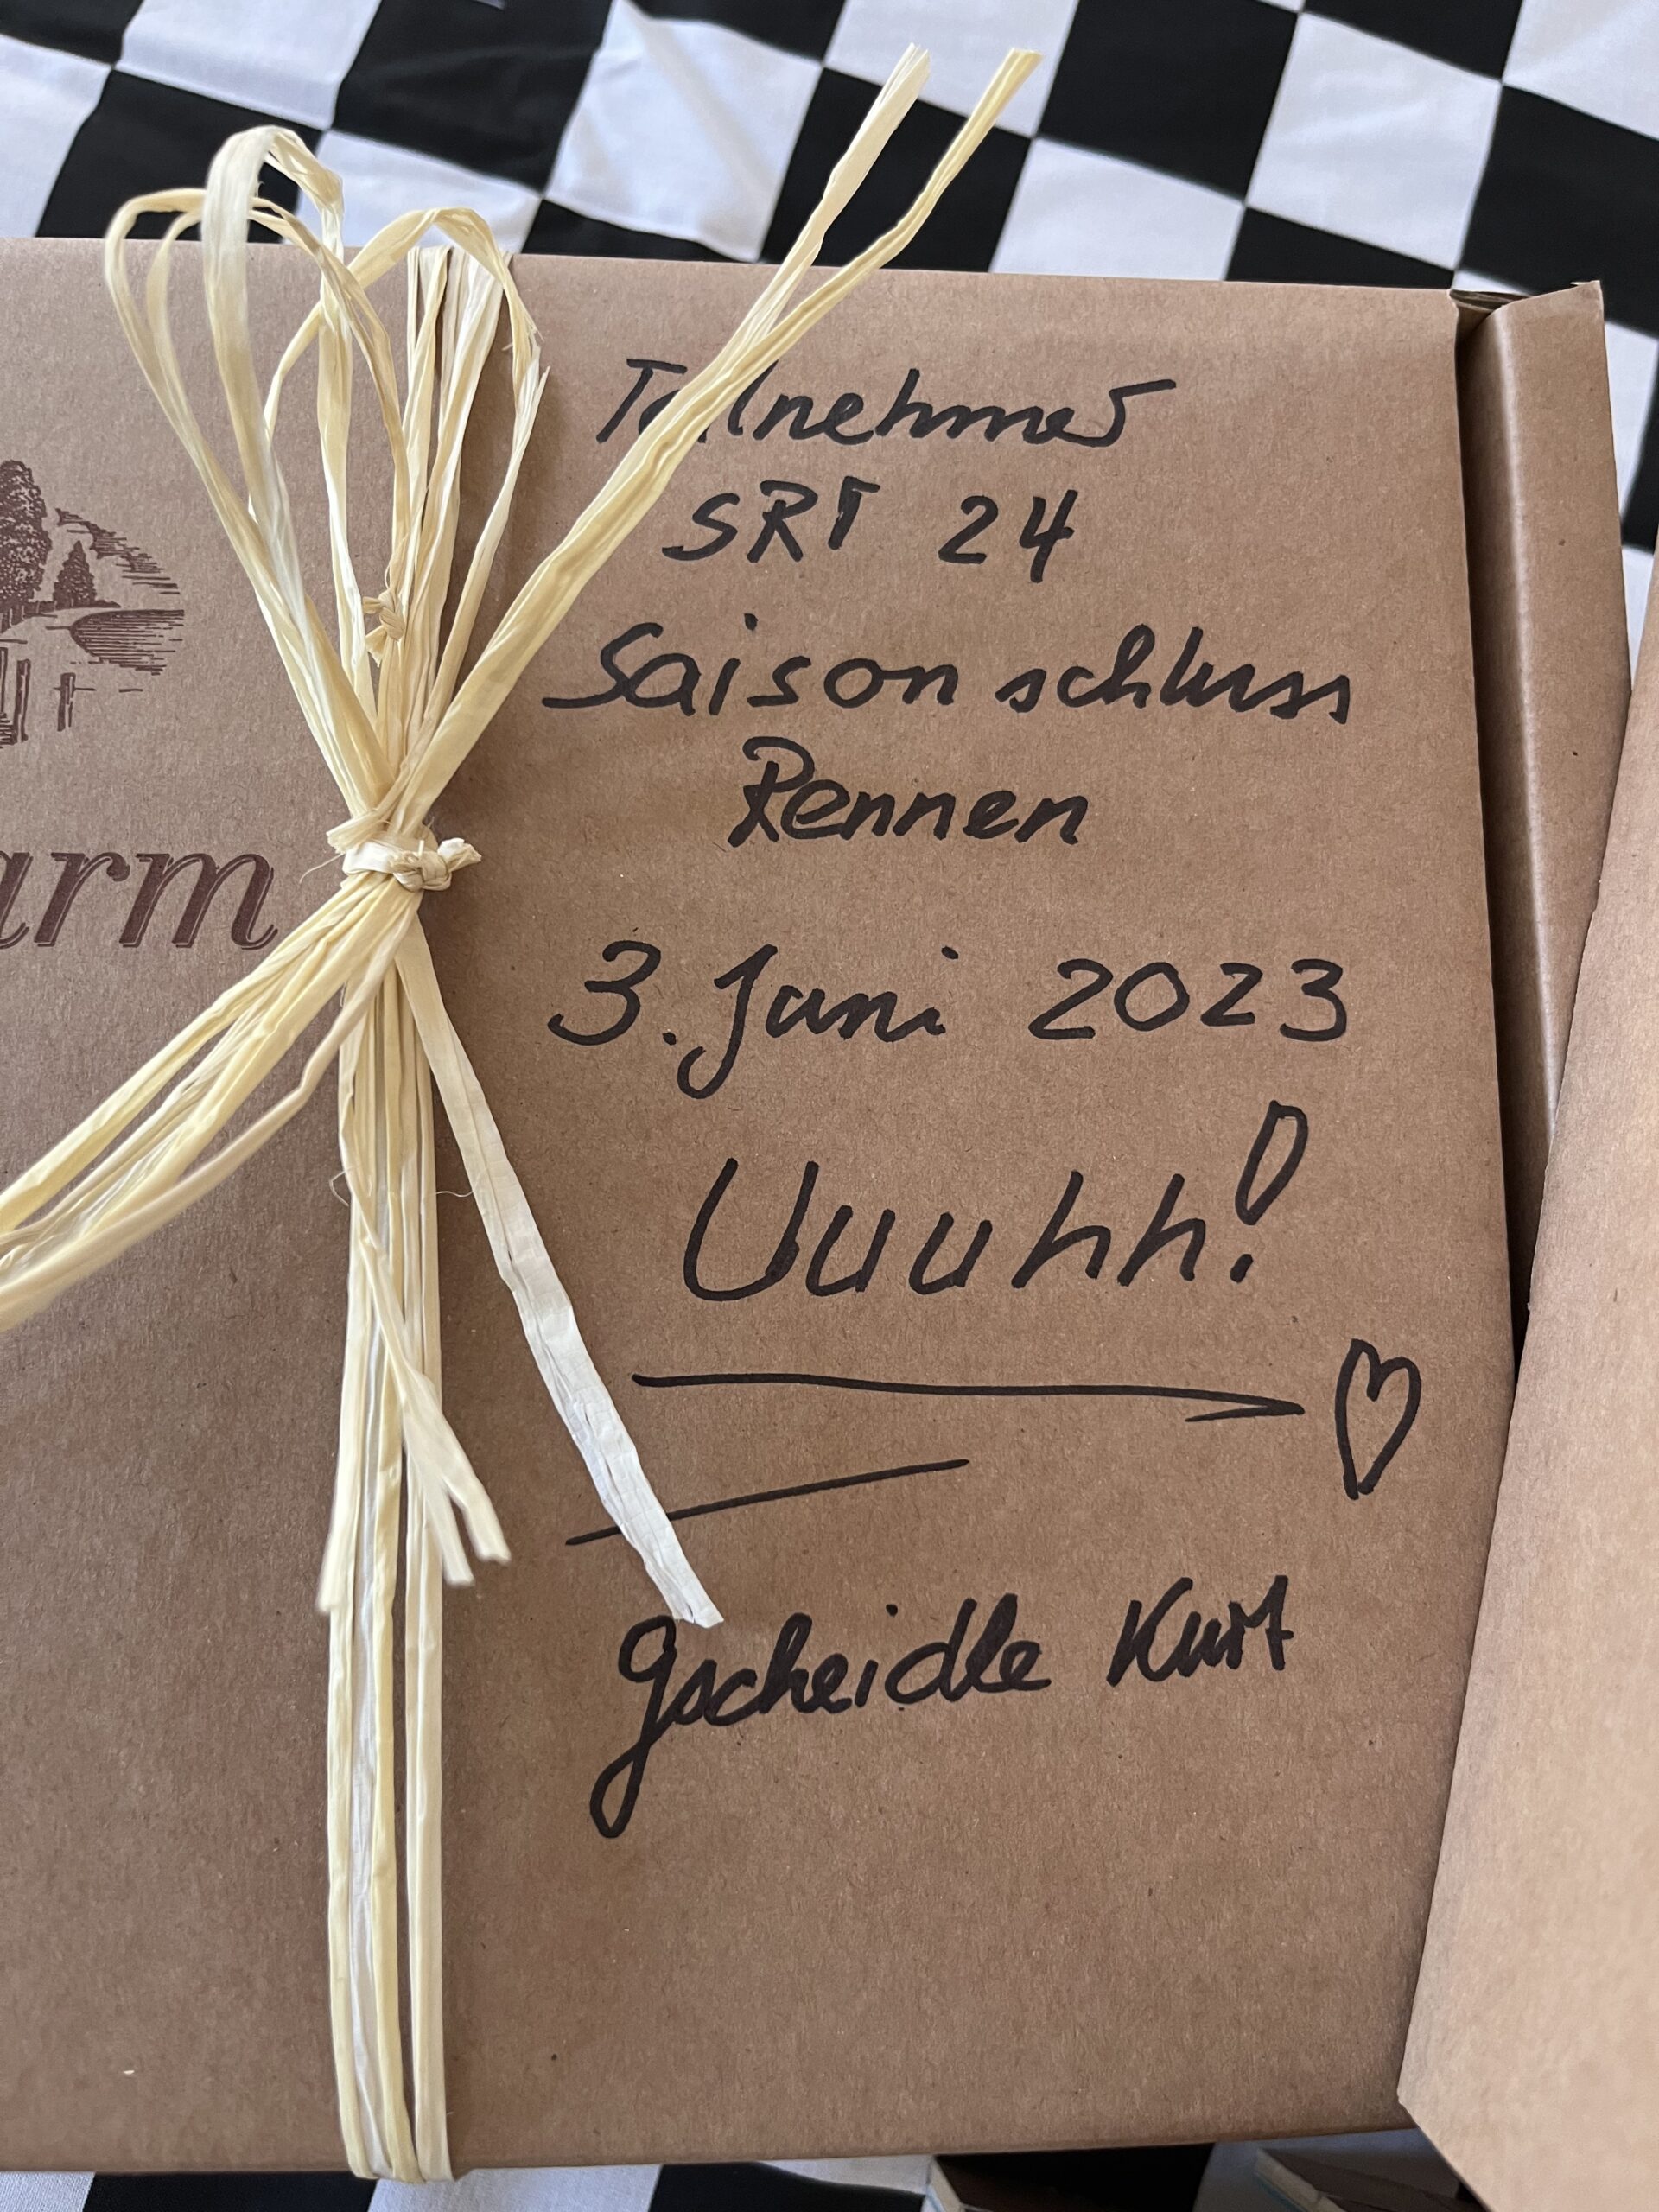 Teilnehmer
SRT 24
Saisonschluss
Rennen
3. Juni 2023
Uuuhh!
Gscheidle Kurt
arm